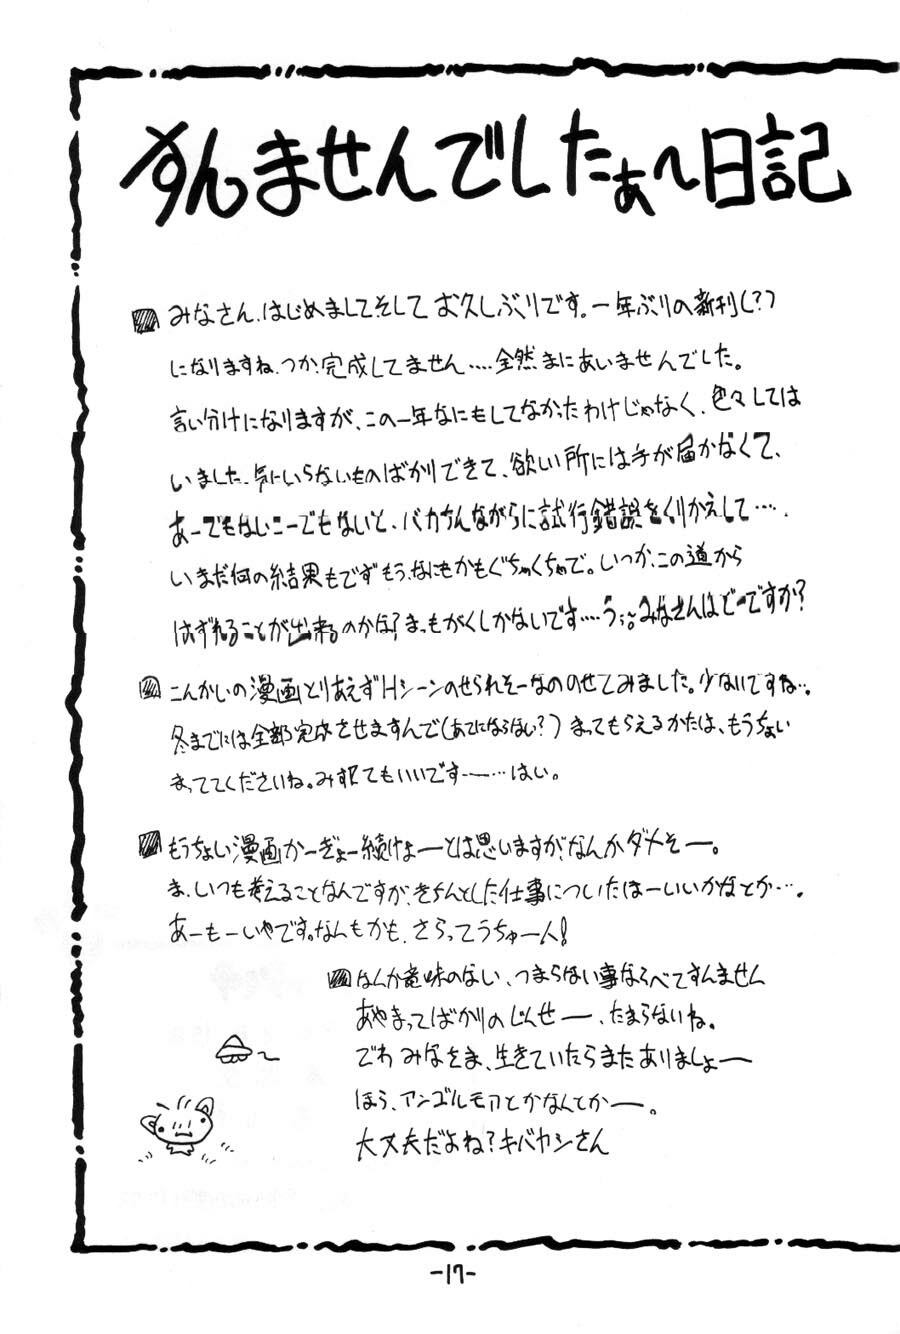 すんませんでしたぁ〜日記
みなさん、はじめましてそして お久しぶりです。一年ぶりの新刊(?)
になりますね、つか完成してません‥‥全然まにあいませんでした。
言い分けになりますが、この一年なにもしてなかったわけじゃなく、色々しては
いました、気にいらないものばかりできて、欲しい所には手が届かなくて、
あーでもないこーでもないと、バカちんながらに試行錯誤をくりかえして‥‥、
いまだ何の結果もでずもう、なにもかもぐちゃくちゃで。いつか、この道から
はずれることが出来るのかな?まっもがくしかないです‥‥う;。みなさんはどーですか?
こんかいの漫画とりあえずHシーンのせられそーなののせてみました。少ないですね‥。
冬までには全部完成させますんで(あてにならない?)まってもらえるかたは、もうちょい
まっててくださいね。み捨てもいいです――‥‥はい。
もうちょい漫画かーぎょー続けよーとは思いますが、なんかダメそー。
ま、いつも考えることなんですが、きちんとした仕事についたほーいいかなとか‥‥。
あーもーいやです。なんもかも、さらってうちゅー人!
なんか意味のない、つまらない事ならべてすんません
あやまってばかりのじんせー、たまらないね。
でわ みなさま、生きていたらまたありましょー
ほら、アンゴルモアとかなんとかー。
大丈夫だよね?キバヤシさん
-17-